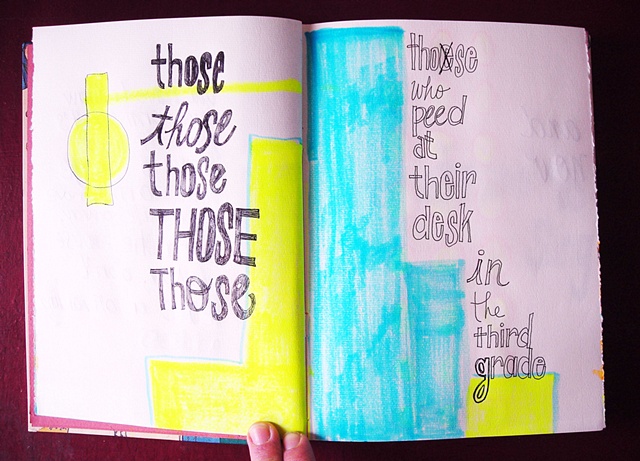 those
those
those
THOSE
Those
those
who
peed
at
their
desk
in
the
third
grade